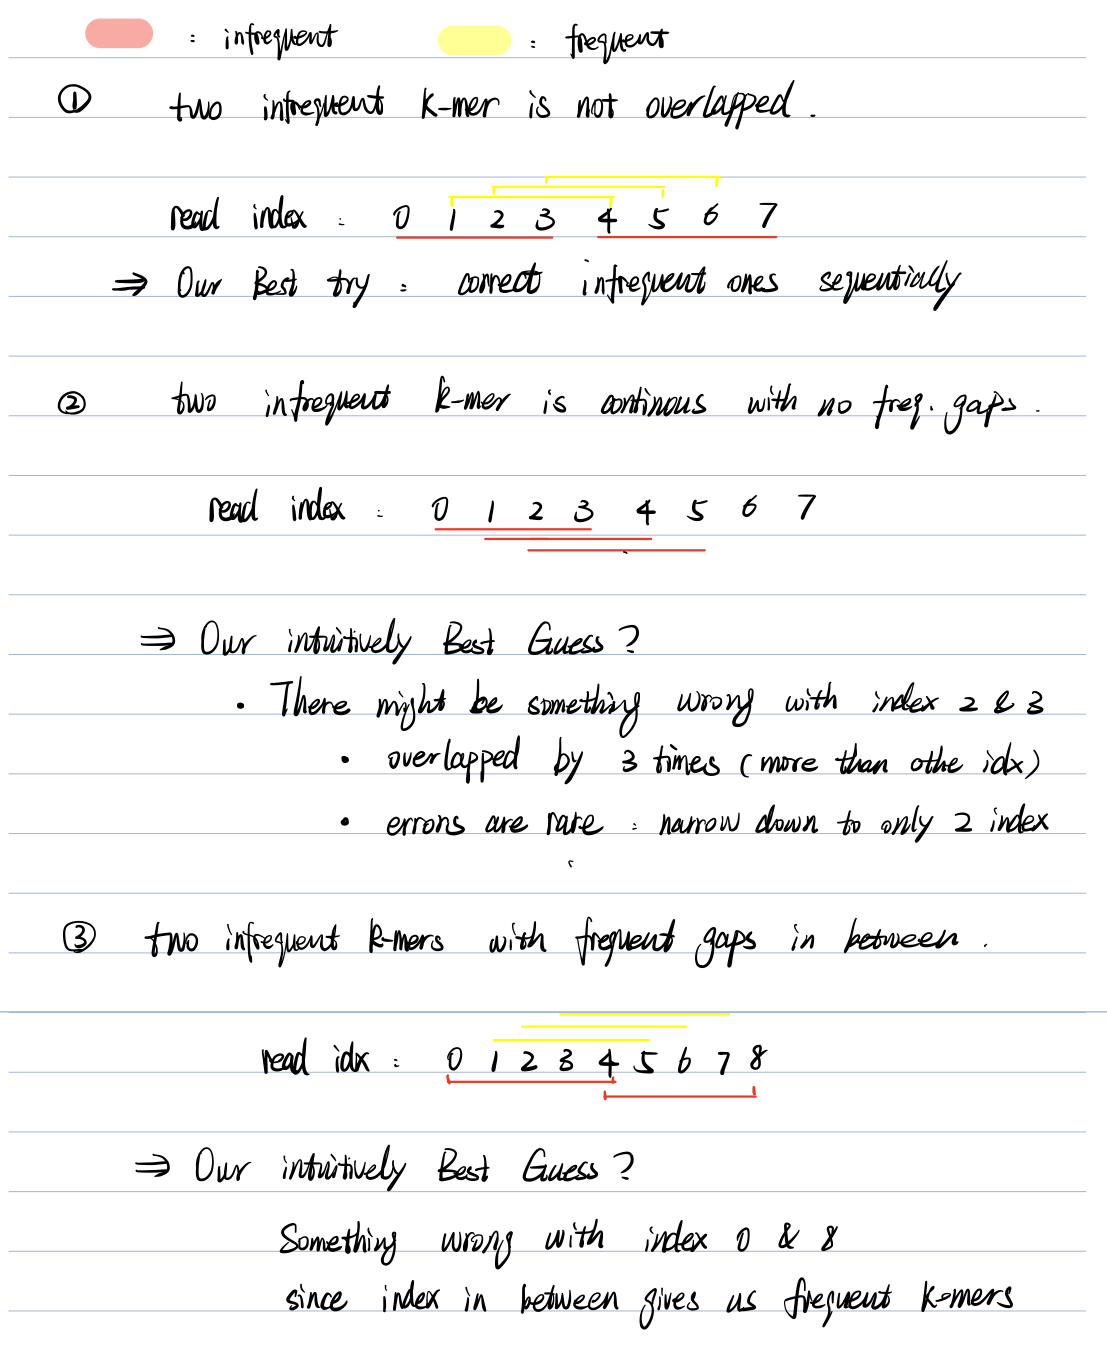 : infrequent : frequent
① two infrequent k-mer is not overlapped.
read index : 0 1 2 3 4 5 6 7
⇒ Our Best try : correct infrequent ones sequentially
② two infrequent k-mer is continous with no freq. gaps.
read index : 0 1 2 3 4 5 6 7
⇒ Our intuitively Best Guess?
• There might be something wrong with index 2 & 3
• overlapped by 3 times (more than othe idx)
• errors are rare : narrow down to only 2 index
③ two infrequent k-mers with frequent gaps in between.
read idx : 0 1 2 3 4 5 6 7 8
⇒ Our intuitively Best Guess?
Something wrong with index 0 & 8
since index in between gives us frequent k-mers